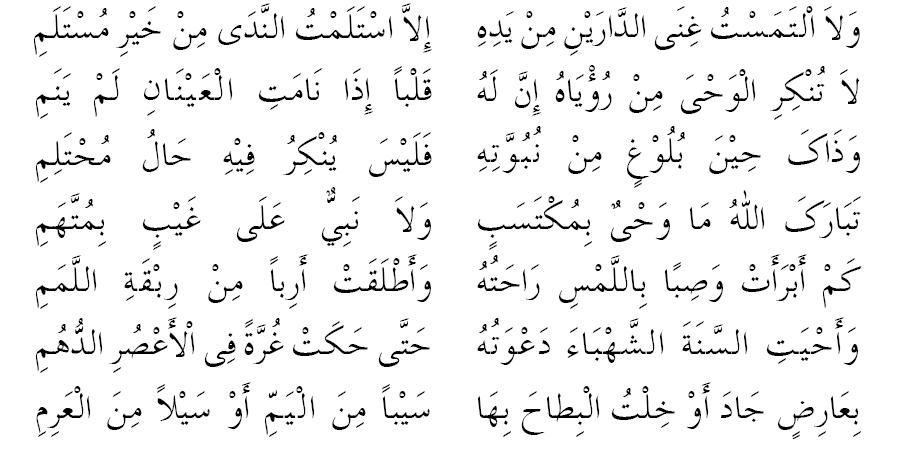 وَلاَ الْتَمَسْتُ غِنَى الدَّارَيْنِ مِنْ يَدِهِ إِلاَّ اسْتَلَمْتُ النَّدَى مِنْ خَيْرِ مُسْتَلَمِ
لاَ تُنْكِرِ الْوَحْىَ مِنْ رُؤْيَاهُ إِنَّ لَهُ قَلْباً إِذَا نَامَتِ الْعَيْنَانِ لَمْ يَنَمِ
وَذَاكَ حِيْنَ بُلُوْغٍ مِنْ نُبُوَّتِهِ فَلَيْسَ يُنْكِرُ فِيْهِ حَالُ مُحْتَلِمِ
تَبَارَكَ اللهُ مَا وَحْىٌ بِمُكْتَسَبٍ وَلاَ نَبِيٌّ عَلَى غَيْبٍ بِمُتَّهَمِ
كَمْ أَبْرَأَتْ وَصِبًا بِاللَّمْسِ رَاحَتُهُ وَأَطْلَقَتْ أَرِباً مِنْ رِبْقَةِ اللَّمَمِ
وَأَحْيَتِ السَّنَةَ الشَّهْبَاءَ دَعْوَتُهُ حَتَّى حَكَتْ غُرَّةً فِى الْأَعْصُرِ الدُّهُمِ
بِعَارِضٍ جَادَ أَوْ خِلْتُ الْبِطاحَ بِهَا سَيْباً مِنَ الْيَمِّ أَوْ سَيْلاً مِنَ الْعَرِمِ